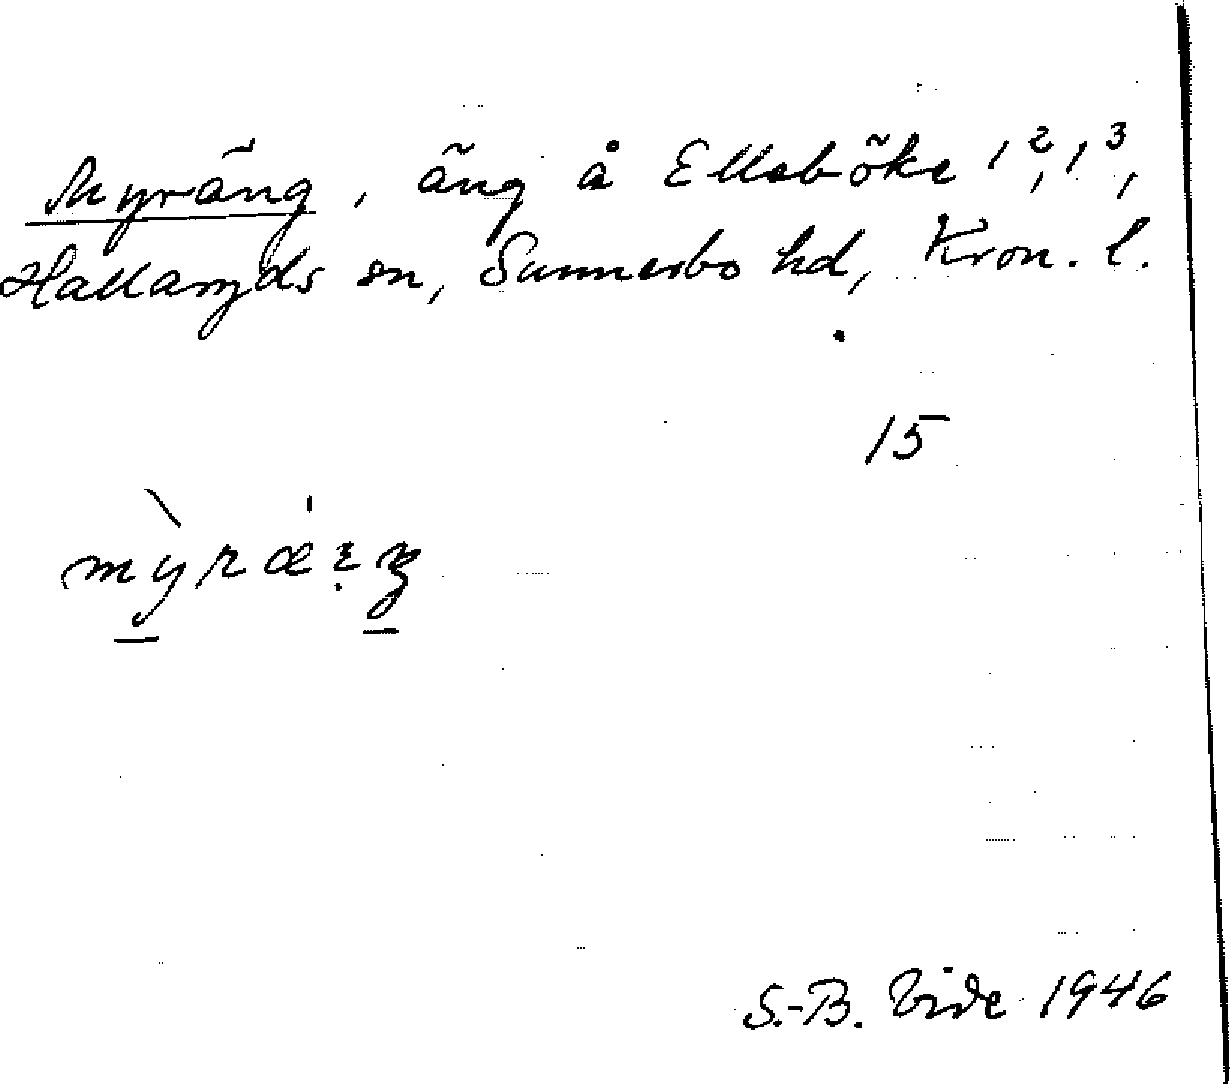 Myräng, äng å Elleböke 1², 1³,
Hallaryds sn, Sunnerbo hd, Kron. l.
15
S.-B. Vide 1946